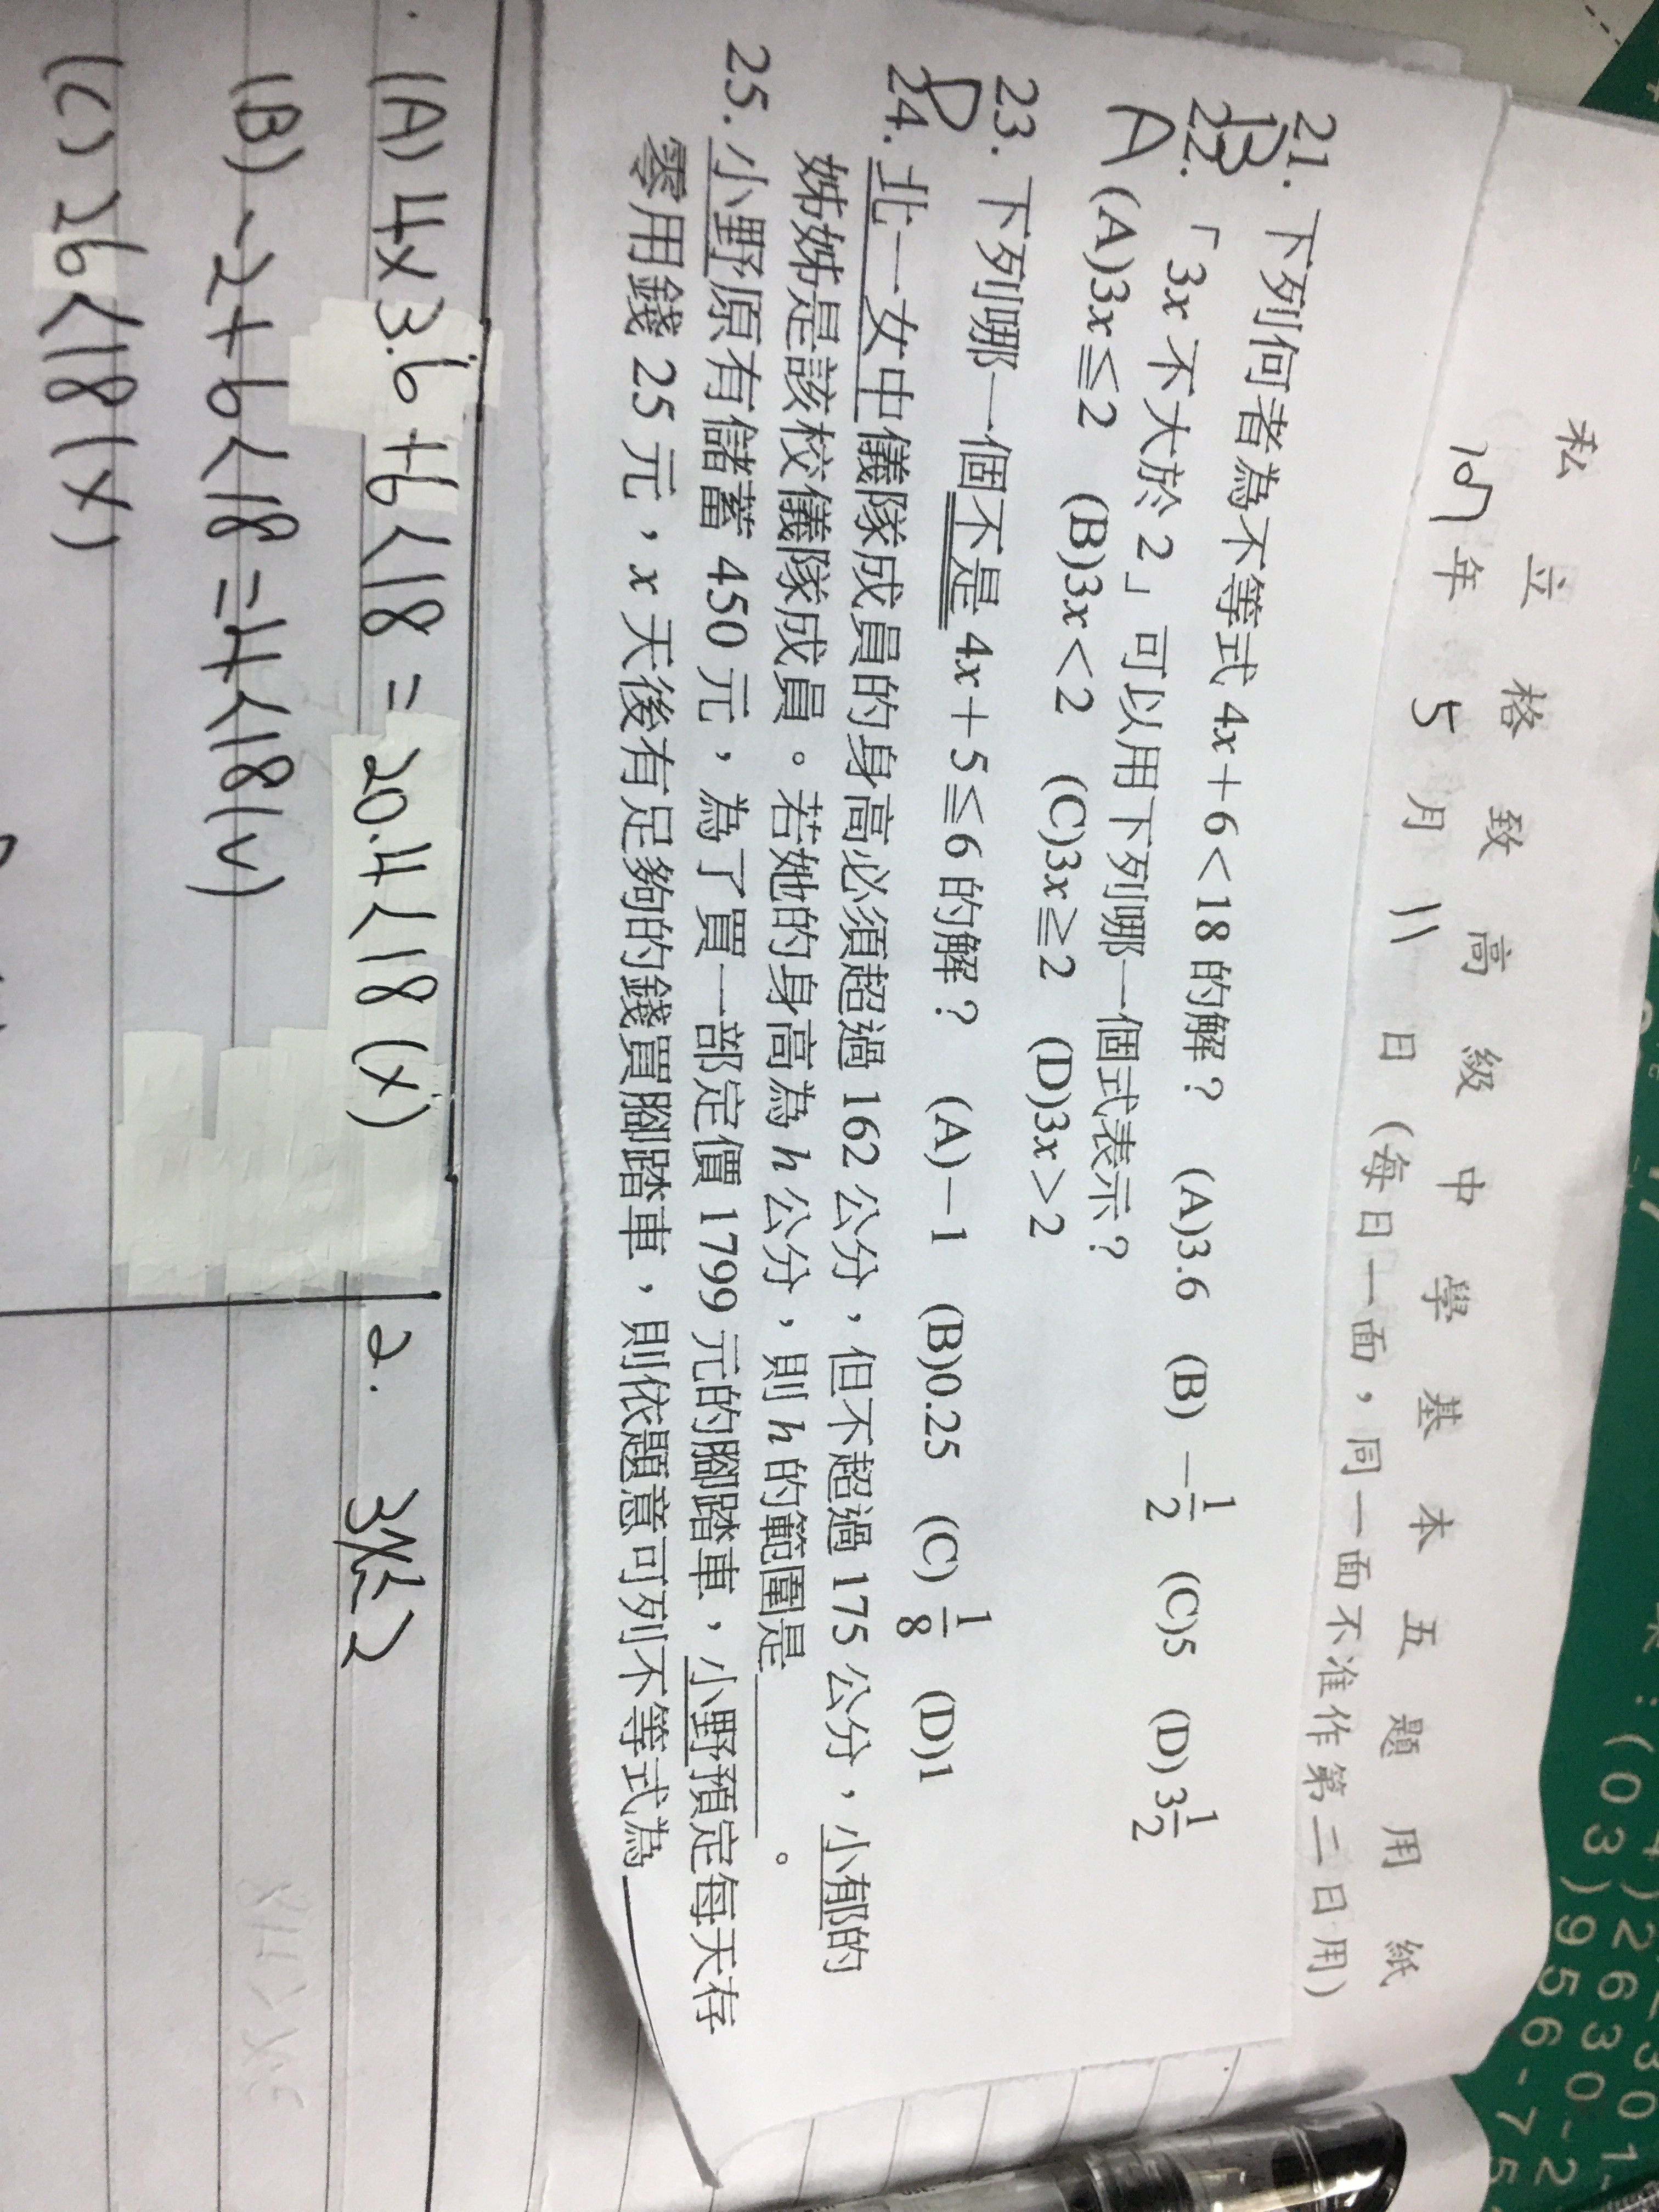 私立格致高級中學基本五題用紙
107年5月11日(每日一面，同一面不准作第二日用)
21. 下列何者為不等式 4x＋6＜18 的解？ (A)3.6 (B)－1/2 (C)5 (D)3 1/2
B
22. 「3x 不大於 2」可以用下列哪一個式表示？
A (A)3x≦2 (B)3x＜2 (C)3x≧2 (D)3x＞2
23. 下列哪一個不是 4x＋5≦6 的解？ (A)－1 (B)0.25 (C)1/8 (D)1
D
24. 北一女中儀隊成員的身高必須超過 162 公分，但不超過 175 公分，小郁的
姊姊是該校儀隊成員。若她的身高為 h 公分，則 h 的範圍是＿＿＿＿。
25. 小野原有儲蓄 450 元，為了買一部定價 1799 元的腳踏車，小野預定每天存
零用錢 25 元，x 天後有足夠的錢買腳踏車，則依題意可列不等式為＿＿
(A) 4×3.6+6<18 = 20.4<18 (×)
(B) -2+6<18 = 4<18 (v)
(C) 26<18 (×)
2. 3x≤2